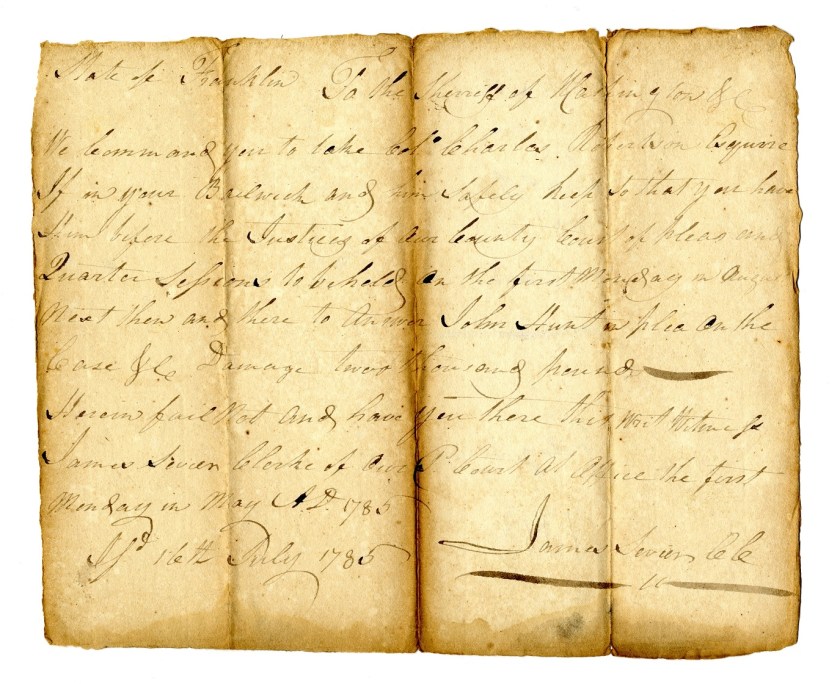 State of Franklin To the Sherriff of Washington &C
We Command you to take Colo Charles Robertson Esquire
If in your Bailwick and him Safely keep So that you have
Him before the Justices of our County Court of pleas and
Quarter Sessions to be held on the first Monday in August
Next then and there to Answer John Hunt in plea on the
Case &C Damage two thousand pound
Herein fail Not and have you there this Writ Witness
James Sevier Clerk of our Court At Office the first
Monday in May A.D. 1785
Isd 16th July 1785 James Sevier CC